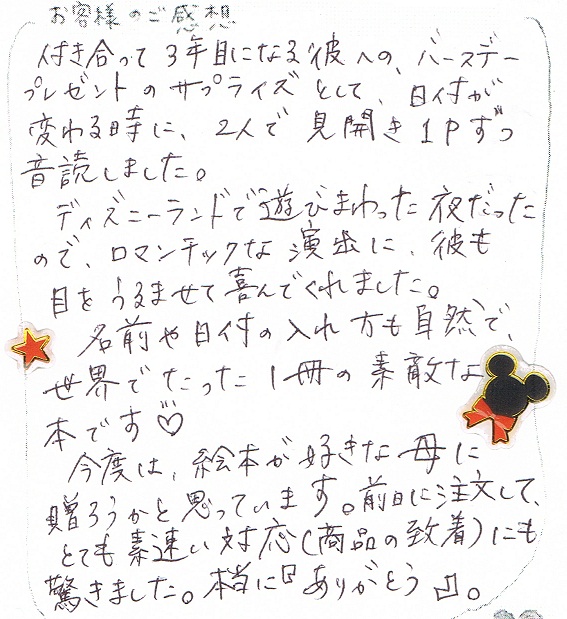 お客様のご感想
付き合って3年目になる彼への、バースデー
プレゼントのサプライズとして、日付が
変わる時に、2人で見開き1Pずつ
音読しました。
ディズニーランドで遊びまわった夜だった
ので、ロマンチックな演出に、彼も
目をうるませて喜んでくれました。
名前や日付の入れ方も自然で、
世界でたった1冊の素敵な
本です♡
今度は、絵本が好きな母に
贈ろうかと思っています。前日に注文して、
とても素速い対応(商品の致着)にも
驚きました。本当に『ありがとう』。